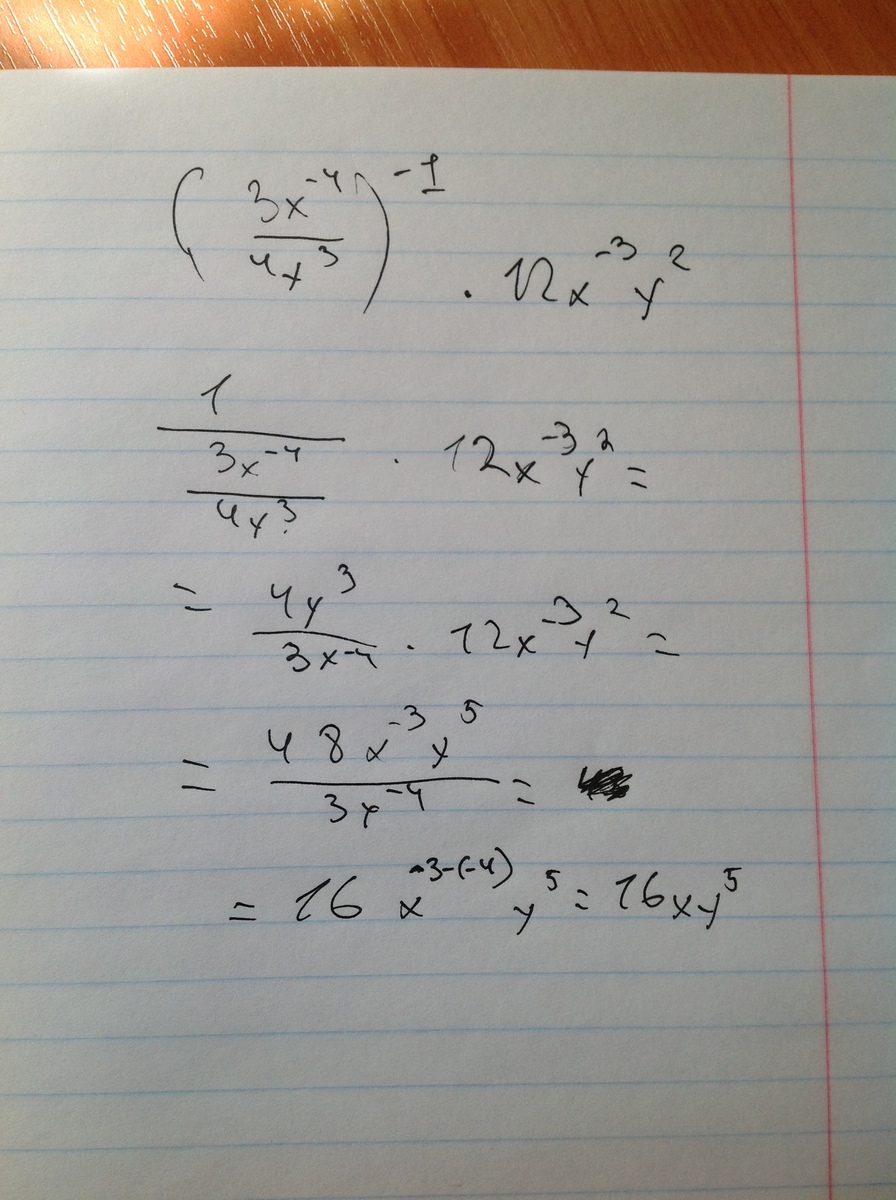 (3x⁻⁴/4y³)⁻¹ · 12x⁻³y²
1/(3x⁻⁴/4y³) · 12x⁻³y² =
= 4y³/3x⁻⁴ · 12x⁻³y² =
= 48x⁻³y⁵/3x⁻⁴ =
= 16x⁻³⁻⁽⁻⁴⁾y⁵ = 16xy⁵